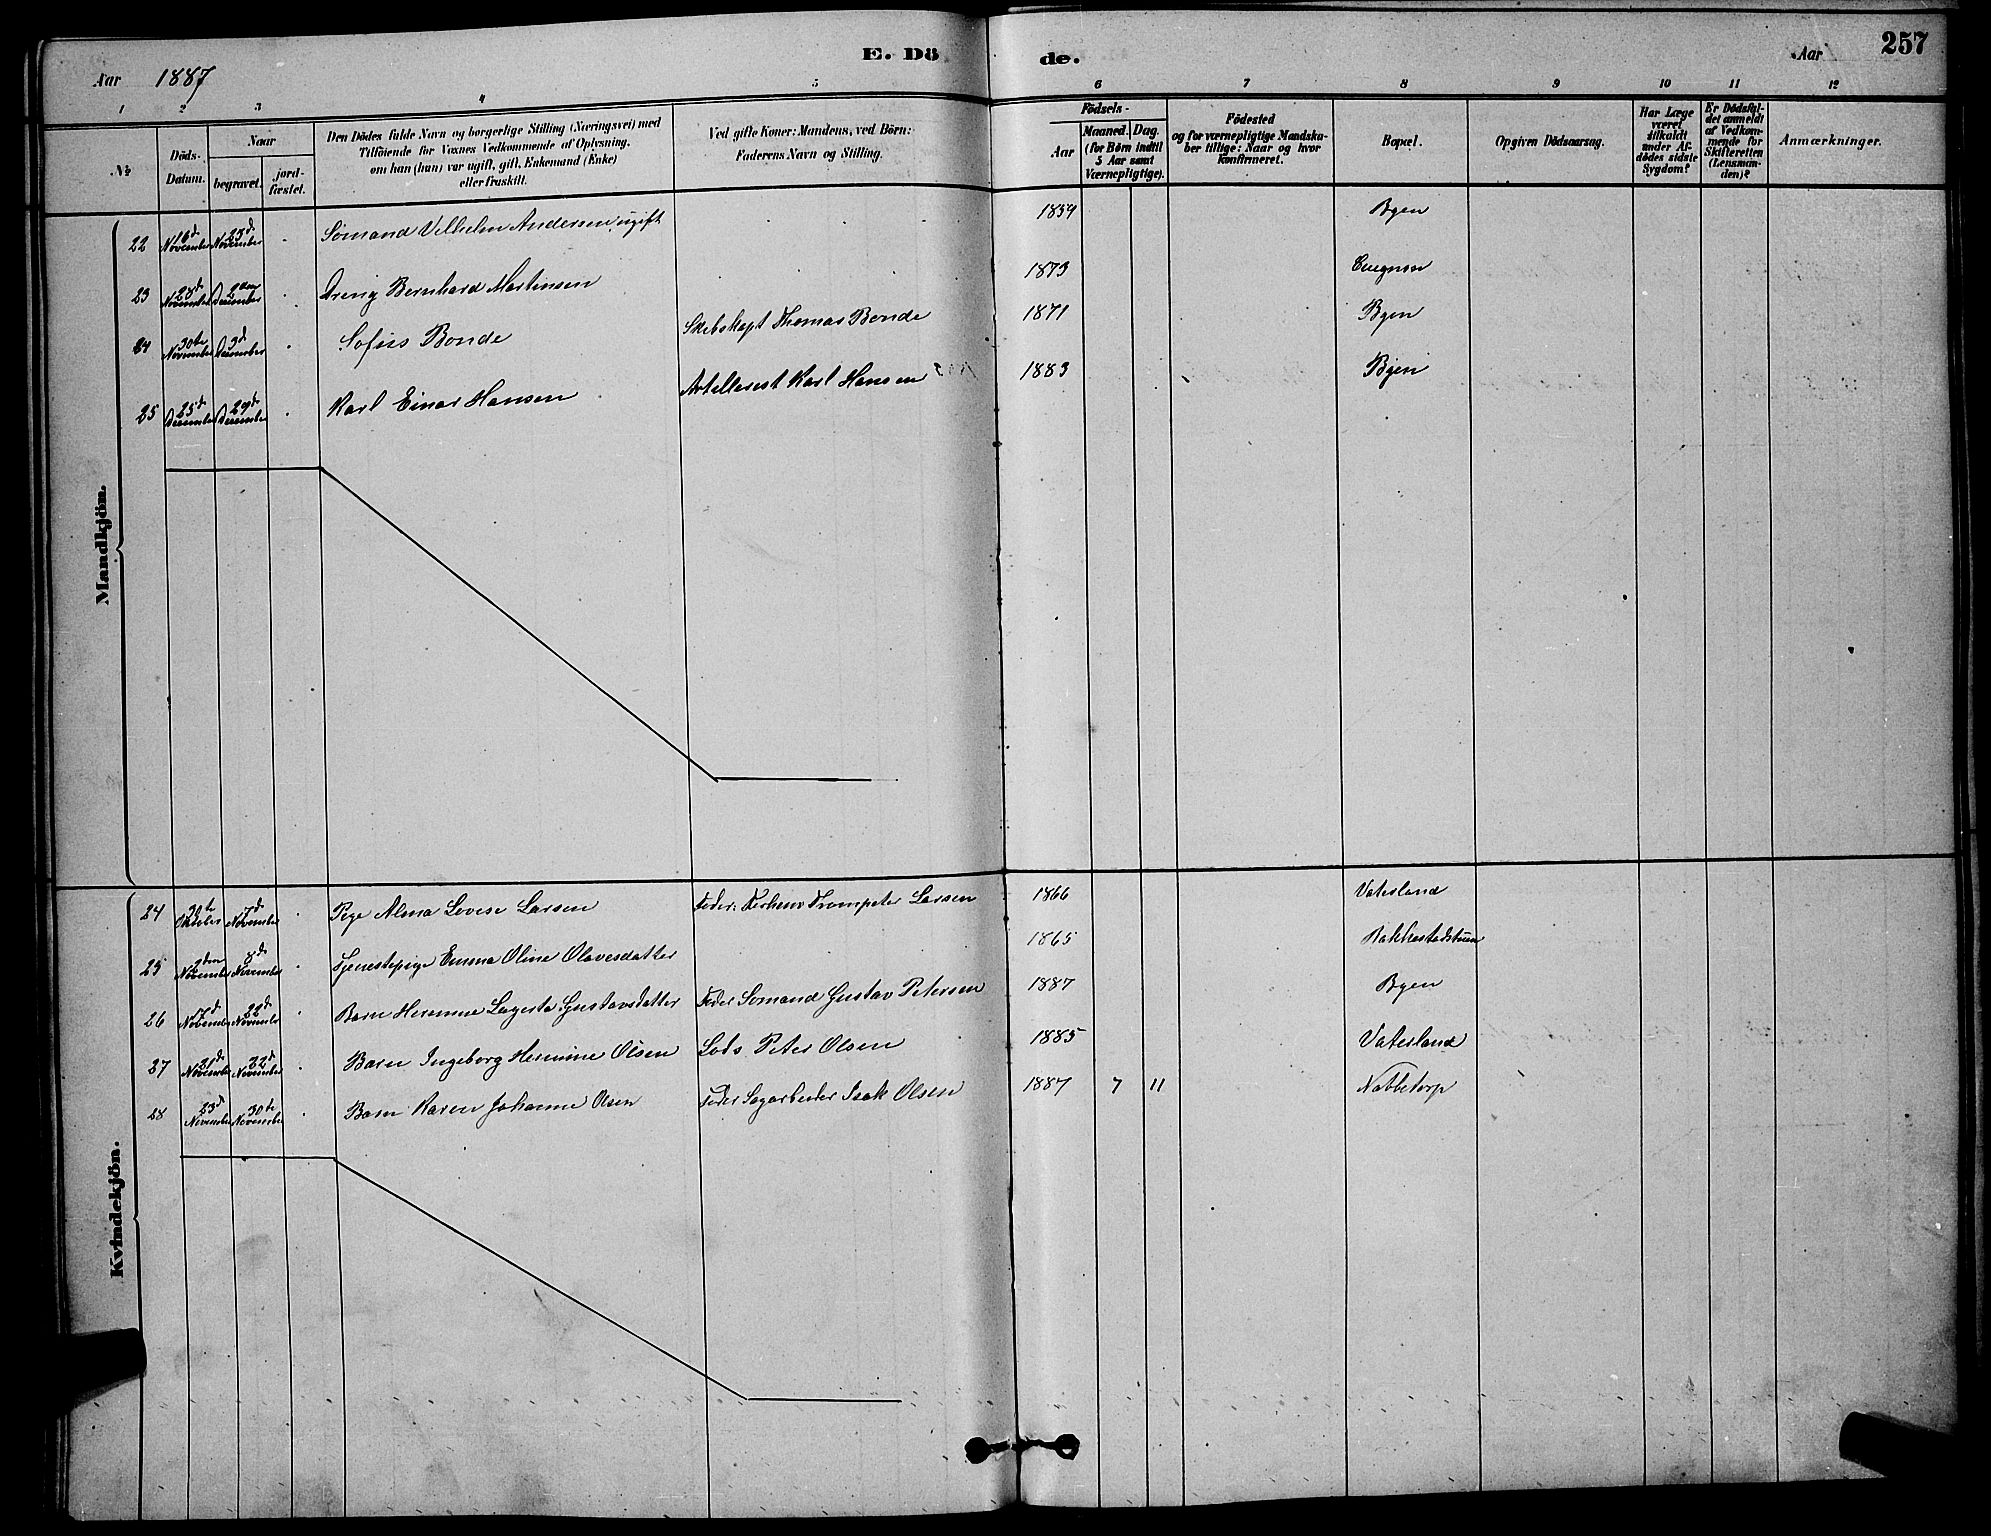 E. Dö de.
257
Aar 1887
Aar
1 2 3 4 5 6 7 8 9 10 11 12
№
Döds-Datum.
Naar
begravet.
jord-fæstet.
Den Dödes fulde Navn og borgerlige Stilling (Næringsvei) med
Tilföiende for Voxnes Vedkommende af Oplysning,
om han (hun) var ugift, gift, Enkemand (Enke)
eller fraskilt.
Ved gifte Koner: Mandens, ved Börn:
Faderens Navn og Stilling.
Födsels-
Aar
Maaned. Dag.
(for Börn indtil
5 Aar samt
Værnepligtige).
Födested
og for værnepligtige Mandska-
ber tillige: Naar og hvor
konfirmeret.
Bopæl.
Opgiven Dödsaarsag.
Har Læge
været
tilkaldt
under Af-
dödes sidste
Sygdom?
Er Dödsfal-
det anmeldt
af Vedkom-
mende for
Skifteretten
(Lensman-
den)?
Anmærkninger.
Mandkjön.
22 16d November 23d November Sømand Vilhelm Andersen, ugift 1859 Byen
23 28d November 2den December Dreng Bernhard Martinsen 1873
24 30te November 3d December Sofus Bonde Skibskapt Thomas Bonde 1871 Byen
25 25d December 29d December Karl Einar Hansen Artillerist Karl Hansen 1883 Byen
Kvindekjön.
24 31te Oktober 7d November Pige Alma Lovise Larsen Fader: Trompeter Larsen 1866 Vaterland
25 2den November 8d November Tjenestepige Emma Oline Olavesdatter 1865
26 17d November 22d November Barn Hermine Lagerta Gustavsdatter Fader Sømand Gustav Petersen 1887 Byen
27 21d November 22d November Barn Ingeborg Hermine Olsen Lods Peter Olsen 1885 Vaterland
28 23d November 30te November Barn Karen Johanne Olsen Fader Sagarbeider Isak Olsen 1887 7 11 Nabbetorp